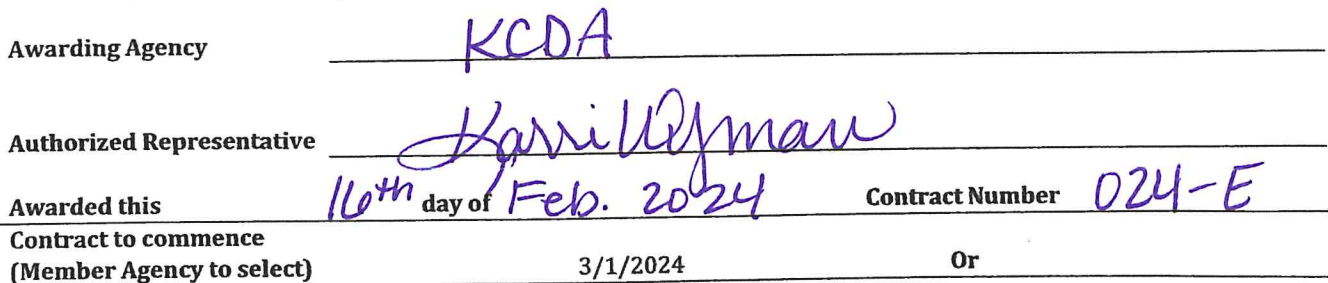 Awarding Agency KCDA
Authorized Representative Karri Wyman
Awarded this 16th day of Feb. 2024 Contract Number 024-E
Contract to commence
(Member Agency to select) 3/1/2024 Or